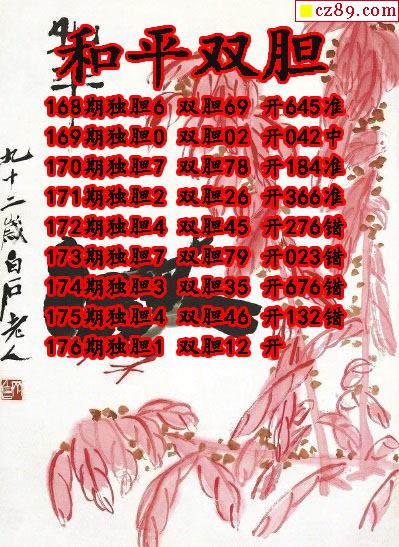 cz89.com
和平双胆
168期独胆6 双胆69 开645准
169期独胆0 双胆02 开042中
170期独胆7 双胆78 开184准
171期独胆2 双胆26 开366准
172期独胆4 双胆45 开276错
173期独胆7 双胆79 开023错
174期独胆3 双胆35 开676错
175期独胆4 双胆46 开132错
176期独胆1 双胆12 开
和平
九十二岁白石老人